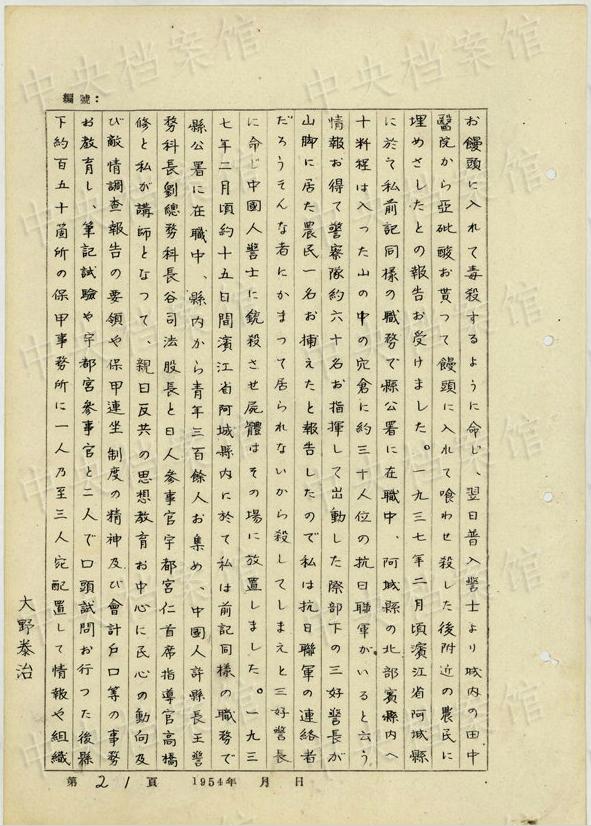 編號：
お饅頭に入れて毒殺するように命じ、翌日普入警士より城内の田中
醫院から亞砒酸お貰って饅頭に入れて喰わせ殺した後附近の農民に
埋めさしたとの報告お受けました。一九三七年二月頃濱江省阿城縣
に於て私前記同樣の職務で縣公署に在職中、阿城縣の北部賓縣内へ
十料程は入った山の中の穴倉に約三十人位の抗日聯軍がいると云う
情報お得て警察隊約六十名お指揮して出動した際部下の三好警長が
山脚に居た農民一名お捕えたと報告したので私は抗日聯軍の連絡者
だろうそんな者にかまって居られないから殺してしまえと三好警長
に命じ中國人警士に銃殺させ屍體はその場に放置しました。一九三
七年二月頃約十五日間濱江省阿城縣内に於て私は前記同樣の職務で
縣公署に在職中、縣内から青年三百餘人お集め、中國人許縣長王警
務科長劉總務科長谷司法股長と日人參事官宇都宮仁首席指導官高橋
修と私が講師となって、親日反共の思想教育お中心に民心の動向及
び敵情調査報告の要領や保甲連坐制度の精神及び會計戶口等の事務
お教育し、筆記試驗や宇都宮參事官と二人で口頭試問お行つた後縣
下約百五十箇所の保甲事務所に一人乃至三人宛配置して情報や組織
大野泰治
第21頁 1954年 月 日
中央档案馆